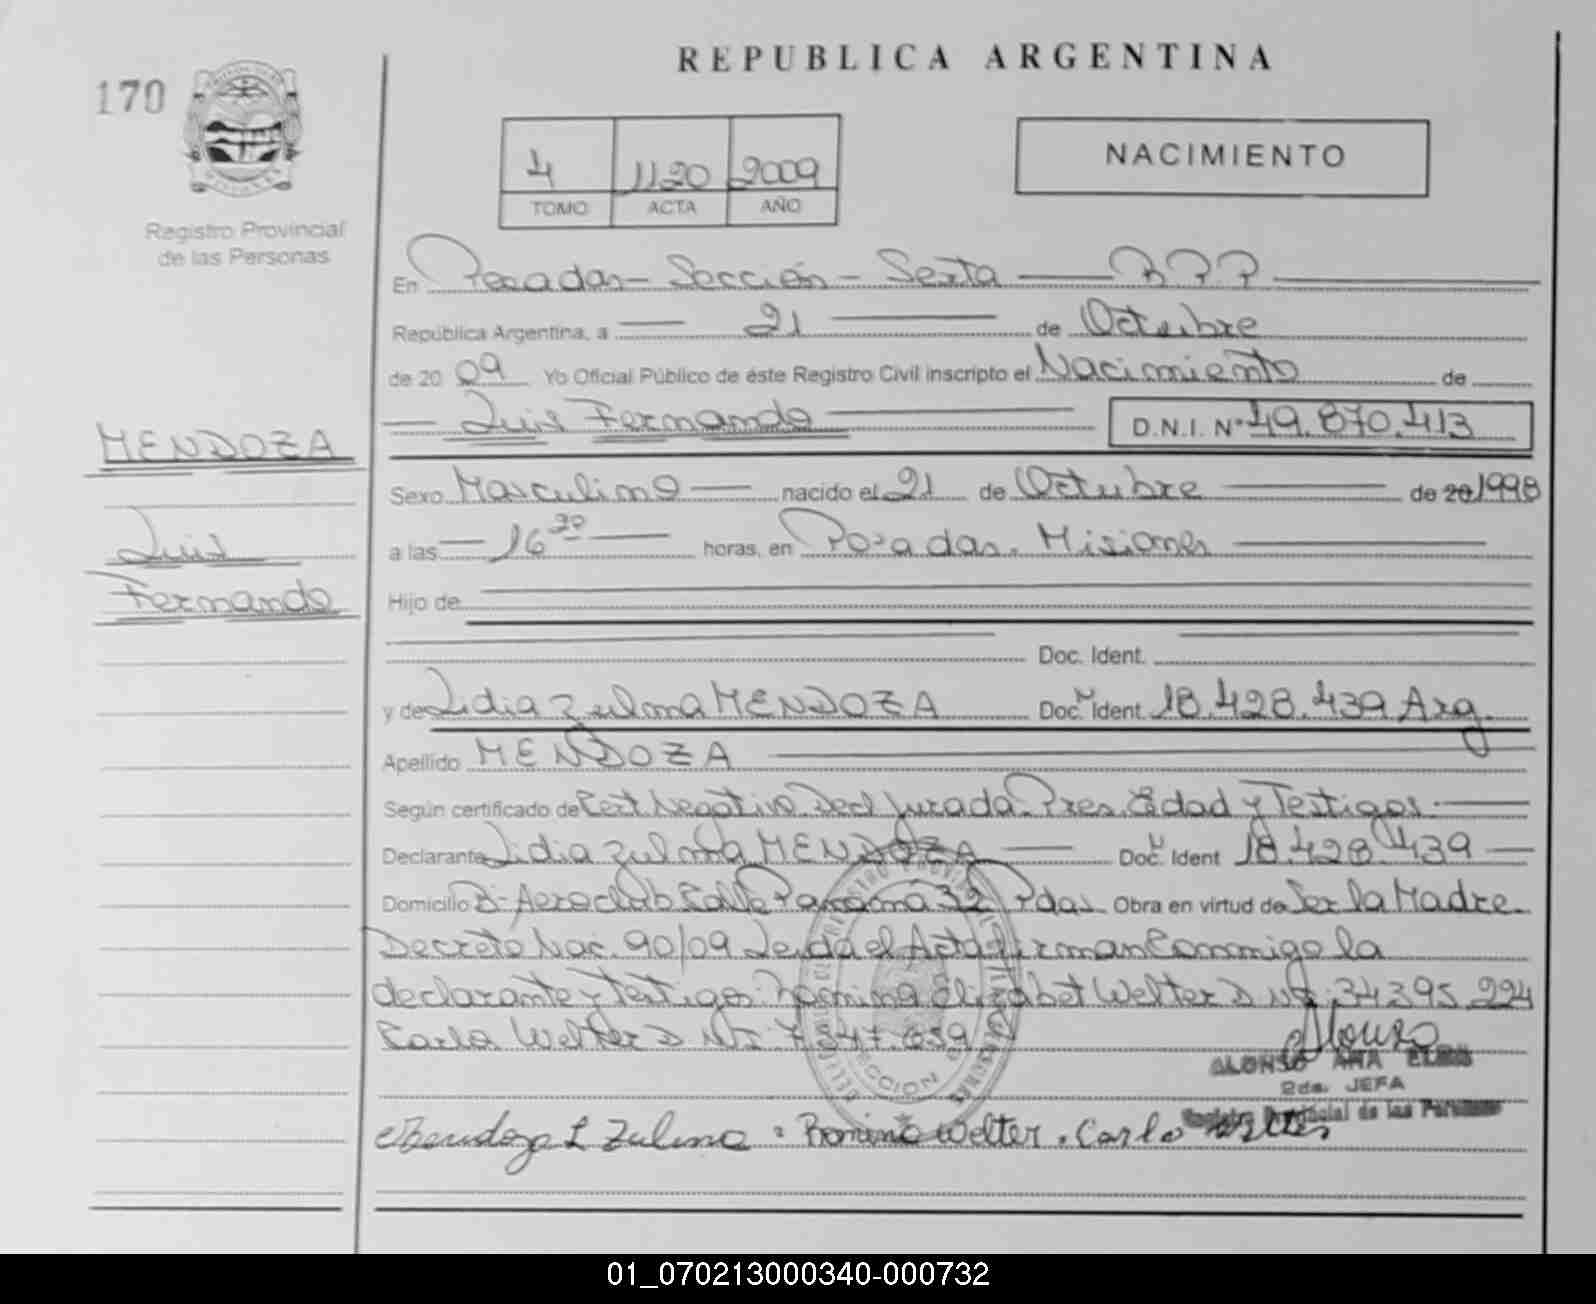 REPUBLICA ARGENTINA
170
4 1120 2009
TOMO ACTA AÑO
NACIMIENTO
Registro Provincial
de las Personas
En Posadas - Sección - Sexta
República Argentina, a 21 de Octubre
de 20 09 Yo Oficial Público de éste Registro Civil inscripto el Nacimiento de
Luis Fernando D.N.I. Nº 49.870.413
MENDOZA
Luis
Fernando
Sexo Masculino nacido el 21 de Octubre de 20 1998
a las 16 30 horas, en Posadas. Misiones
Hijo de
Doc. Ident.
y de Lidia Zulma MENDOZA Doc. Ident. 18.428.439 Arg.
Apellido MENDOZA
Según certificado de Cert Negativo. Decl Jurada. Pres. Edad y Testigos.
Declarante Lidia Zulma MENDOZA Doc. Ident 18.428.439
Domicilio B- Aeroclub Calle Panamá 32 Pdas Obra en virtud de Ser la Madre.
Decreto Nac. 90/09 Leida el Acta firman Conmigo la
declarante y Testigos: Romina Elizabet Welter D Ni: 34395.224
Carlo Welter D Ni: 7.847.659
Alonso
ALONSO ANA
2da. JEFA
Registro Provincial de las Personas
Mendoza L Zulma Romina Welter. Carlo Welter
01_070213000340-000732